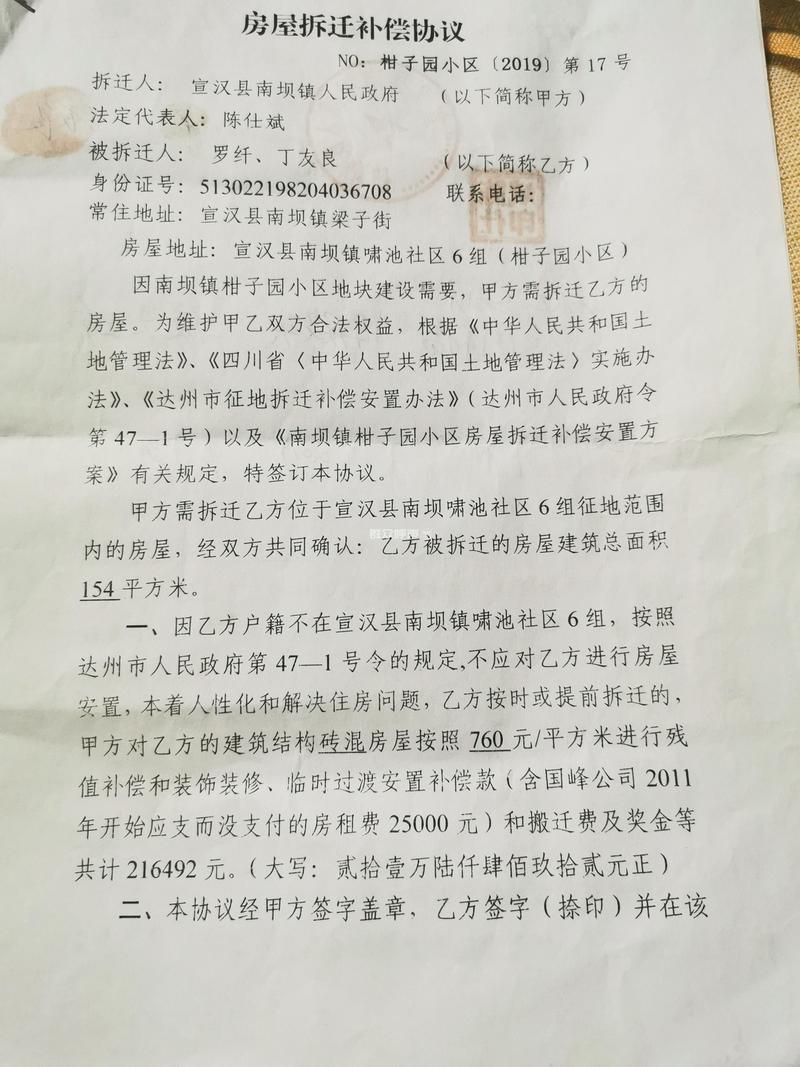 房屋拆迁补偿协议
NO：柑子园小区〔2019〕第17号
拆迁人：宣汉县南坝镇人民政府（以下简称甲方）
法定代表人：陈仕斌
被拆迁人：罗纤、丁友良（以下简称乙方）
身份证号：513022198204036708 联系电话：
常住地址：宣汉县南坝镇梁子街
房屋地址：宣汉县南坝镇啸池社区6组（柑子园小区）
因南坝镇柑子园小区地块建设需要，甲方需拆迁乙方的
房屋。为维护甲乙双方合法权益，根据《中华人民共和国土
地管理法》、《四川省〈中华人民共和国土地管理法〉实施办
法》、《达州市征地拆迁补偿安置办法》（达州市人民政府令
第47—1号）以及《南坝镇柑子园小区房屋拆迁补偿安置方
案》有关规定，特签订本协议。
甲方需拆迁乙方位于宣汉县南坝啸池社区6组征地范围
内的房屋，经双方共同确认：乙方被拆迁的房屋建筑总面积
154平方米。
一、因乙方户籍不在宣汉县南坝镇啸池社区6组，按照
达州市人民政府第47—1号令的规定,不应对乙方进行房屋
安置，本着人性化和解决住房问题，乙方按时或提前拆迁的，
甲方对乙方的建筑结构砖混房屋按照760元/平方米进行残
值补偿和装饰装修、临时过渡安置补偿款（含国峰公司2011
年开始应支而没支付的房租费25000元）和搬迁费及奖金等
共计216492元。（大写：贰拾壹万陆仟肆佰玖拾贰元正）
二、本协议经甲方签字盖章，乙方签字（捺印）并在该